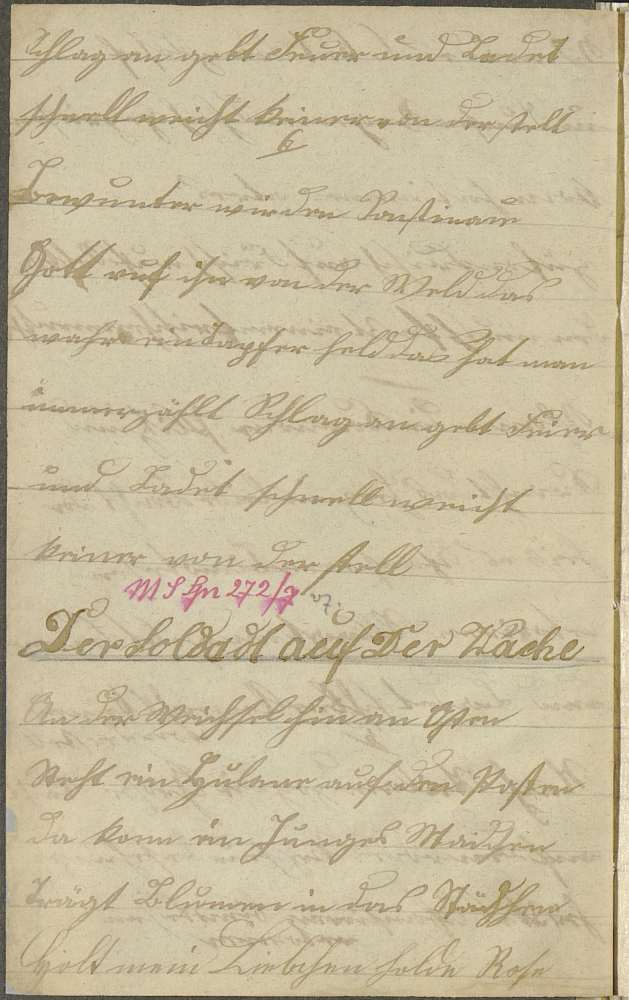 Schlag an gebt Feuer und Ladet
schnell weicht keiner von der stell
6
Bewunter wir den
Gott ruf ihn von der Weld das
wahr ein Tapfer held das hat man
immerzählt Schlag an gebt Feuer
und Ladet schnell weicht
keiner von der stell
MS Hn 272/7
Der Soldadt auf Der Wache
An der Weichsel hin an Osten
Steht ein Hulane auf den Posten
Da kom ein Junges Mädchen
Trägt Blumen in das Städchen
Holt mein Liebchen holde Rose